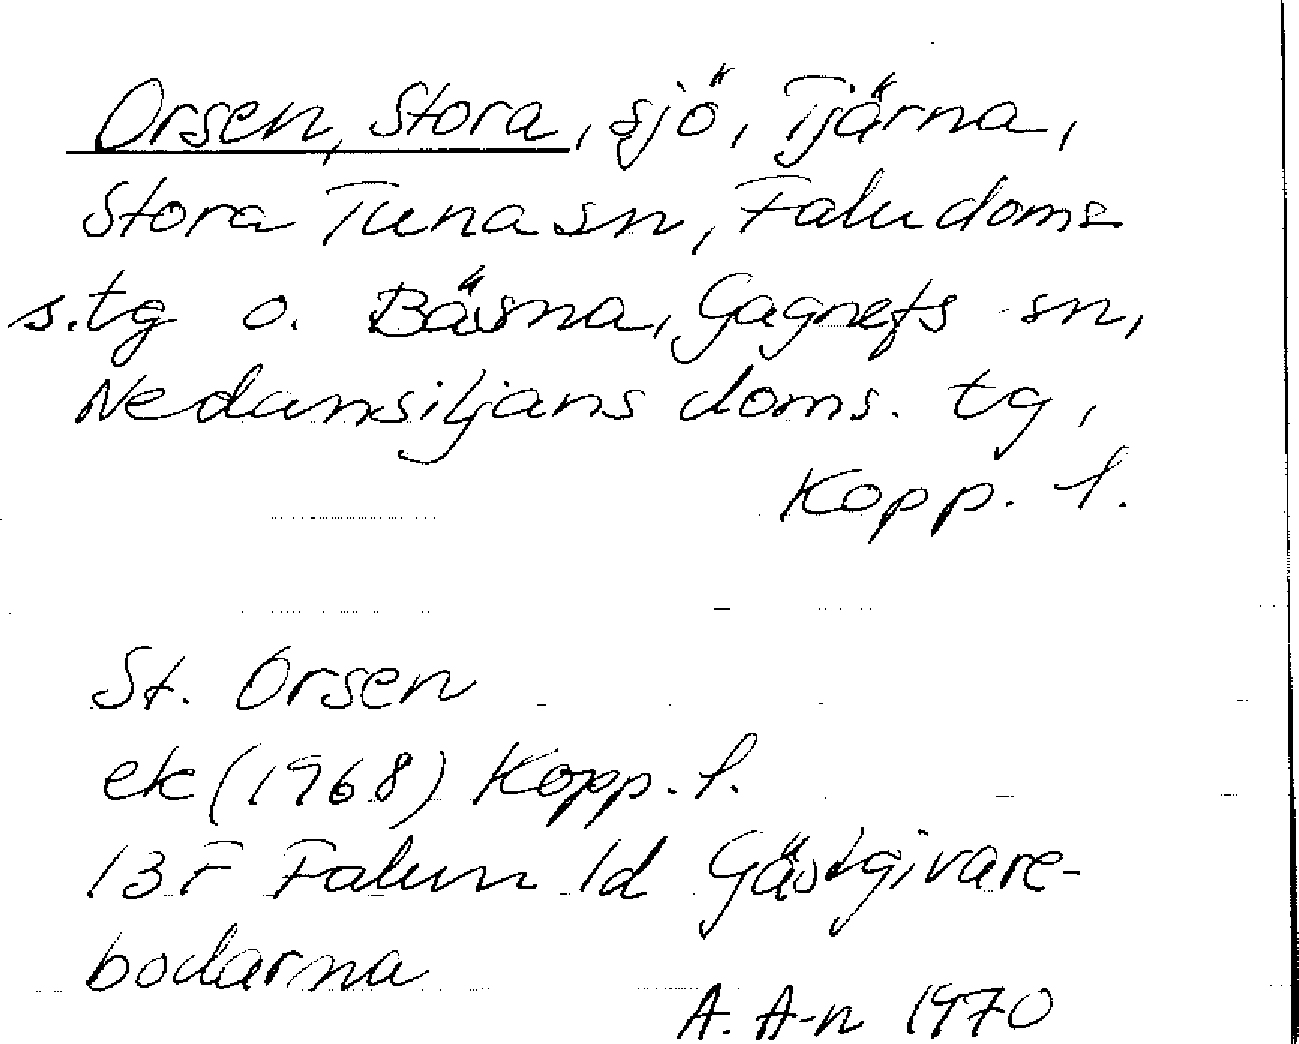 Orsen, Stora, sjö, Tjärna,
Stora Tuna sn, Falu doms
s.tg o. Bäsna, Gagnefs sn,
Nedansiljans doms. tg,
Kopp. l.
St. Orsen
ek (1968) Kopp. l.
13F Falun 1d Gästgivare-
bodarna
A. A-n 1970